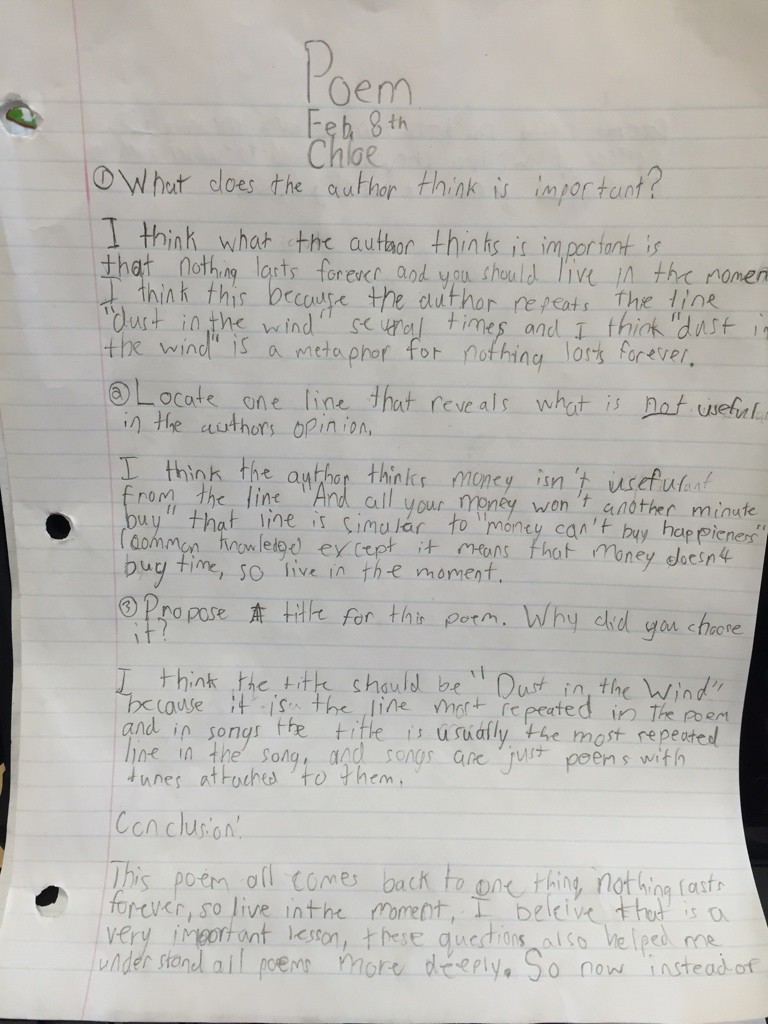 Poem
Feb 8th
Chloe
① What does the author think is important?
I think what the author thinks is important is
that nothing lasts forever and you should live in the momen
I think this because the author repeats the line
"dust in the wind" several times and I think "dust i
the wind" is a metaphor for nothing lasts forever.
② Locate one line that reveals what is not useful
in the authors opinion.
I think the author thinks money isn't useful
from the line "And all your money won't another minute
buy" that line is simular to "money can't buy happieness"
(common knowledge) except it means that money doesn't
buy time, so live in the moment.
③ Propose A title for this poem. Why did you choose
it?
I think the title should be "Dust in the Wind"
because it is the line most repeated in the poem
and in songs the title is usually the most repeated
line in the song, and songs are just poems with
tunes attached to them.
Conclusion:
This poem all comes back to one thing, nothing lasts
forever, so live in the moment, I beleive that is a
very important lesson, these questions also helped me
understand all poems more deeply. So now instead of